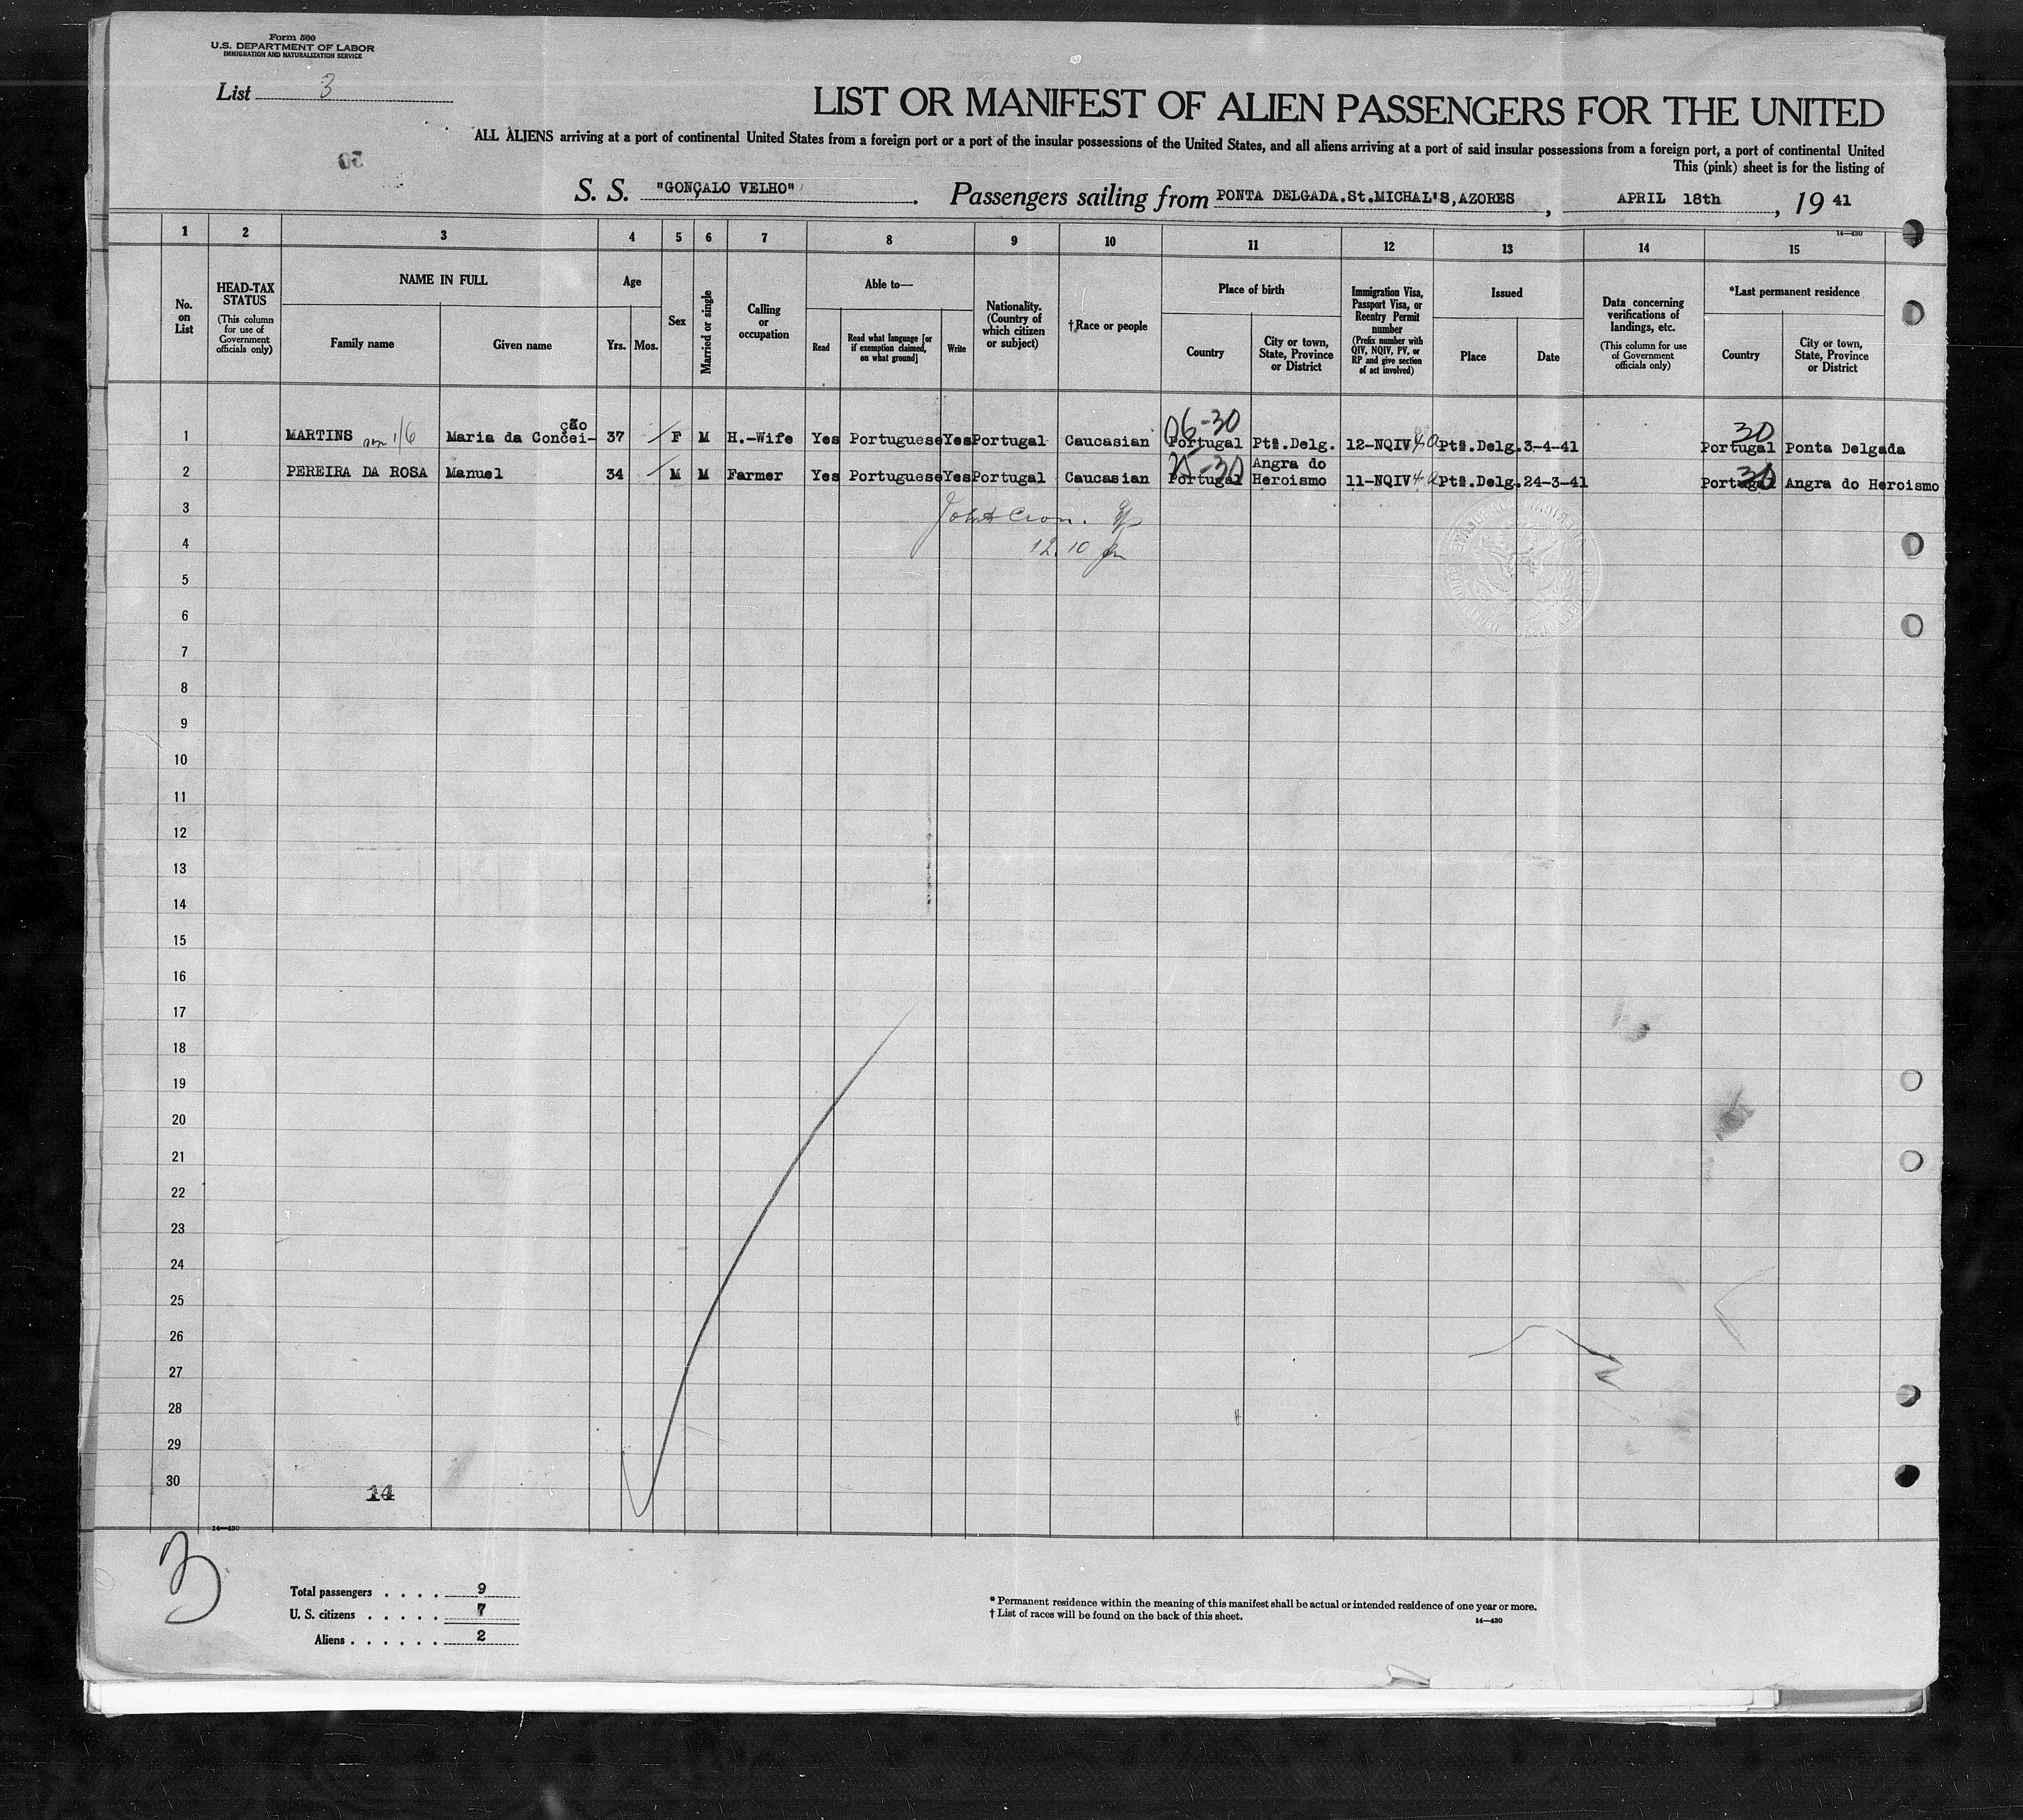 Form 500
U.S. DEPARTMENT OF LABOR
IMMIGRATION AND NATURALIZATION SERVICE
List 3
LIST OR MANIFEST OF ALIEN PASSENGERS FOR THE UNITED
ALL ALIENS arriving at a port of continental United States from a foreign port or a port of the insular possessions of the United States, and all aliens arriving at a port of said insular possessions from a foreign port, a port of continental United
This (pink) sheet is for the listing of
S. S. "GONÇALO VELHO". Passengers sailing from PONTA DELGADA.St.MICHAL'S,AZORES, APRIL 18th, 19 41
1 2 3 4 5 6 7 8 9 10 11 12 13 14 15
14—430
No. on List
HEAD-TAX STATUS
(This column for use of Government officials only)
NAME IN FULL
Family name
Given name
Age
Yrs.
Mos.
Sex
Married or single
Calling or occupation
Able to—
Read
Read what language [or if exemption claimed, on what ground]
Write
Nationality. (Country of which citizen or subject)
†Race or people
Place of birth
Country
City or town, State, Province or District
Immigration Visa, Passport Visa, or Reentry Permit number
(Prefix number with QIV, NQIV, PV, or RP and give section of act involved)
Issued
Place
Date
Data concerning verifications of landings, etc.
(This column for use of Government officials only)
*Last permanent residence
Country
City or town, State, Province or District
ção
06-30
30
1 MARTINS 1/6 Maria da Concei- 37 F M H.-Wife Yes Portuguese Yes Portugal Caucasian Portugal Ptª.Delg. 12-NQIV Ptª.Delg. 3-4-41 Portugal Ponta Delgada
25-30 Angra do
30
2 PEREIRA DA ROSA Manuel 34 M M Farmer Yes Portuguese Yes Portugal Caucasian Portugal Heroismo 11-NQIV Ptª.Delg. 24-3-41 Portugal Angra do Heroismo
3
4 12.10
5
6
7
8
9
10
11
12
13
14
15
16
17
18
19
20
21
22
23
24
25
26
27
28
29
30
14
14—430
3
Total passengers . . . . 9
U. S. citizens . . . . . 7
Aliens . . . . . . 2
* Permanent residence within the meaning of this manifest shall be actual or intended residence of one year or more.
† List of races will be found on the back of this sheet.
14—430